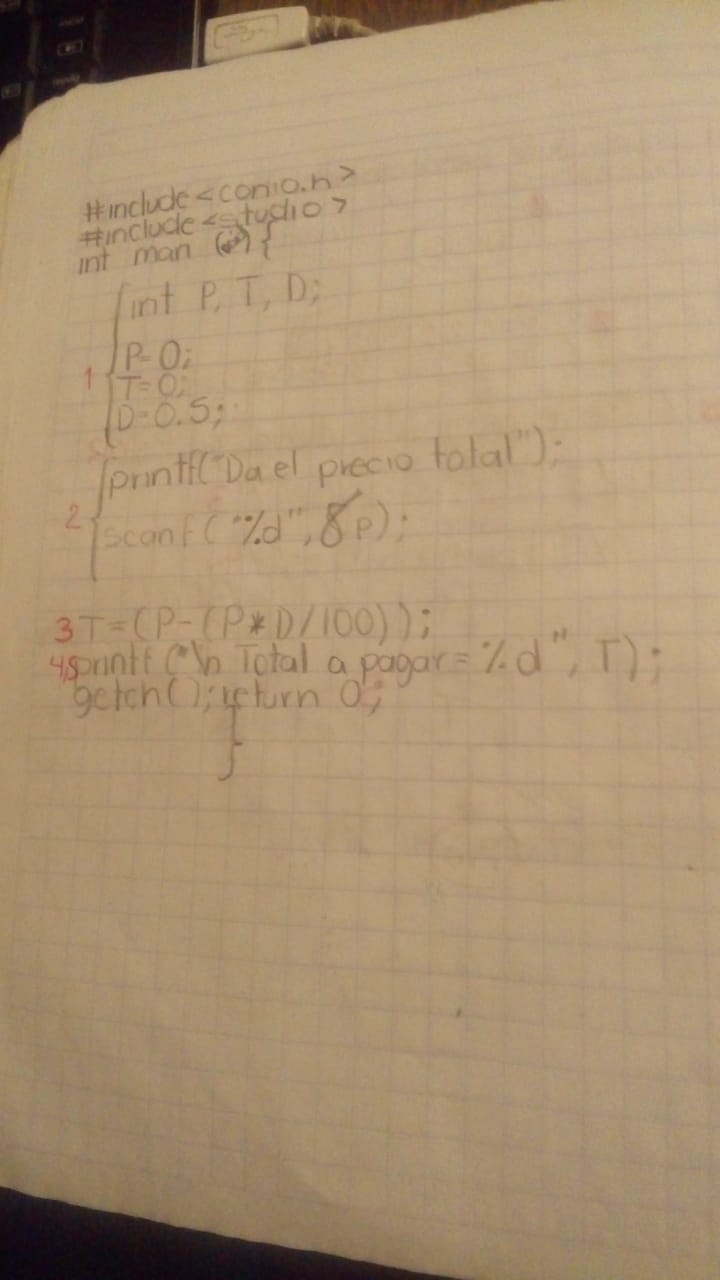 #include<conio.h>
#include<studio>
int man () {
int P, T, D;
P=0;
1
T=0;
D=0.5;
printf("Da el precio total");
2
scanf("%d",&p);
3 T=(P-(P*D/100));
4,5 printf("\n Total a pagar=%d", T);
getch(); return 0;
}